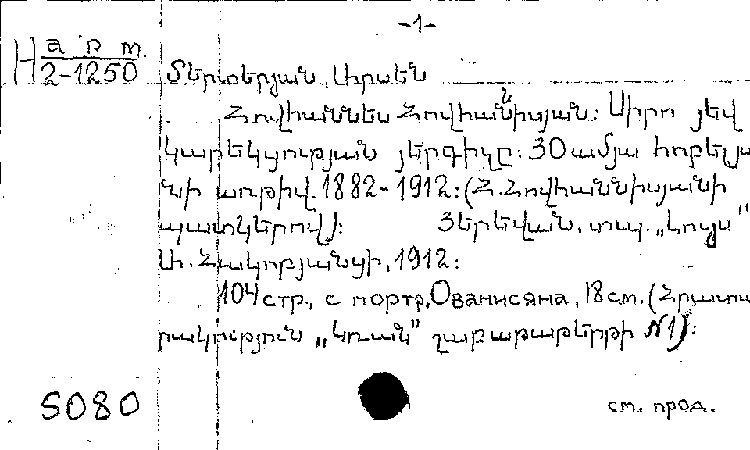 -1-
H арм.
2-1250
Տերտերյան, Արսեն
Հովհաննես Հովհաննիսյան։ Սիրո յեվ
կարեկցության յերգիչը։ 30 ամյա հոբելյա
նի առթիվ. 1882-1912։ (Հ. Հովհաննիսյանի
պատկերով)։ Յերեվան, տպ. „Լույս"
Ա. Հակոբյանցի, 1912։
104 стр., с портр. Ованисяна, 18 см. (Հրատա
րակություն „ շաբաթաթերթի №1)։
5080
см. прод.